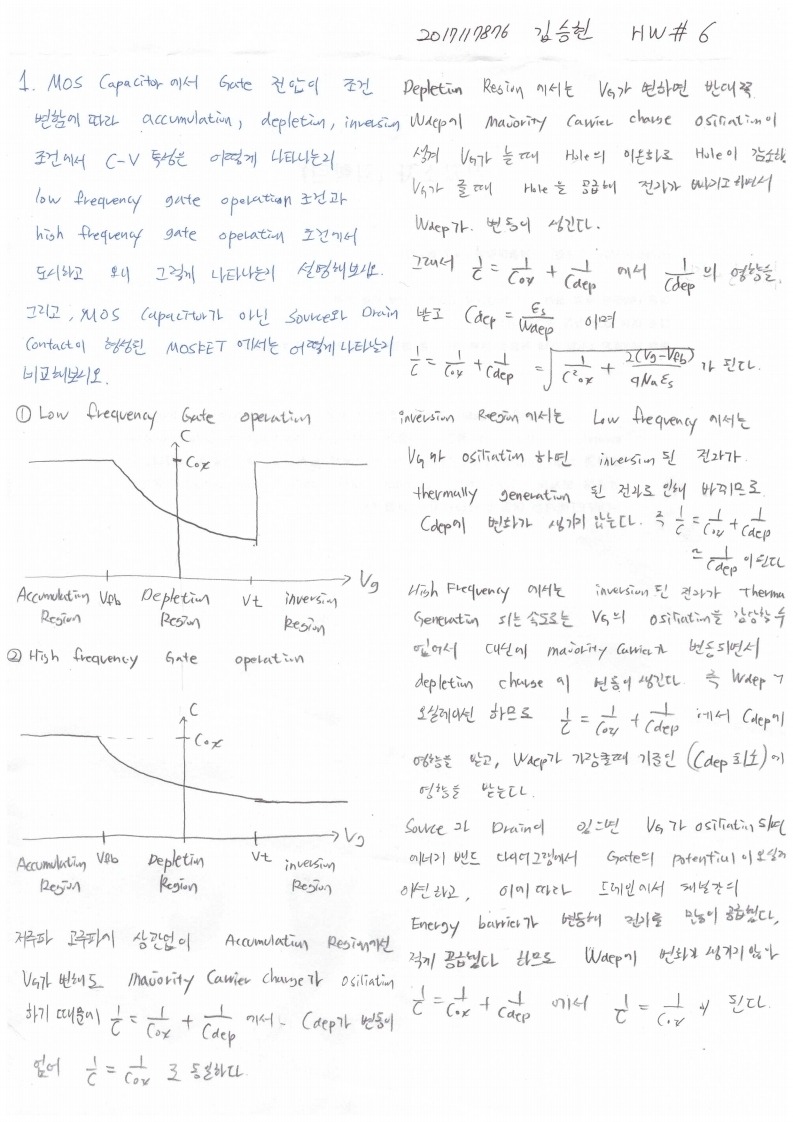 2017117876 김승현 HW# 6
1. MOS Capacitor에서 Gate 전압이 조건
변함에 따라 accumulation, depletion, inversion
조건에서 C-V 특성은 어떻게 나타나는지
low frequency gate operation 조건과
high frequency gate operation 조건에서
도시하고 왜 그렇게 나타나는지 설명해보시오.
그리고, MOS Capacitor가 아닌 Source와 Drain
Contact이 형성된 MOSFET에서는 어떻게 나타날지
비교해보시오.
① Low frequency Gate operation
C
Cox
Vg
Accumulation Region Vfb Depletion Region Vt inversion Region
② High frequency Gate operation
C
Cox
Vg
Accumulation Region Vfb Depletion Region Vt inversion Region
저주파 고주파시 상관없이 Accumulation Region에선
VG가 변해도 Majority Carrier Charge가 Osiliation
하기 때문에 1/C = 1/Cox + 1/Cdep 에서 Cdep가 변동이
없어 1/C = 1/Cox 로 동일하다.
Depletion Region 에서는 VG가 변하면 반대쪽
Wdep에 Majority Carrier charge Ositiation이
생겨 VG가 늘때 Hole의 이온화로 Hole이 감소하고
VG가 줄때 Hole을 공급해 전자가 빠지고 하면서
Wdep가 변동이 생긴다.
그래서 1/C = 1/Cox + 1/Cdep 에서 1/Cdep의 영향을
받고 Cdep = Es/Wdep 이며
1/C = 1/Cox + 1/Cdep = √(1/C²ox + 2(Vg-Vfb)/qNaEs) 가 된다.
inversion Region에서는 Low frequency에서는
VG가 ositiation 하면 inversion 된 전자가
thermally generation 된 전자로 인해 바뀌므로
Cdep에 변화가 생기지 않는다. 즉 1/C = 1/Cox + 1/Cdep
≈ 1/Cdep 이 된다
High Frequency 에서는 inversion 된 전자가 Therma
Generation 되는 속도로는 VG의 Ositiation을 감당할 수
없어서 대신에 majority Carrier가 변동되면서
depletion charge 의 변동이 생긴다. 즉 Wdep가
오실레이션 하므로 1/C = 1/Cox + 1/Cdep 에서 Cdep에
영향을 받고, Wdep가 가장클때 기준인 (Cdep 최소)에
영향을 받는다.
Source 과 Drain이 있으면 VG가 ositiation 되면
에너지 밴드 다이어그램에서 Gate의 potential이 오실레
이션하고, 이에 따라 드레인에서 채널간의
Energy barrier가 변동해 전자를 많이 공급했다,
적게 공급했다 하므로 Wdep에 변화가 생기지 않아
1/C = 1/Cox + 1/Cdep 에서 1/C = 1/Cox 이 된다.